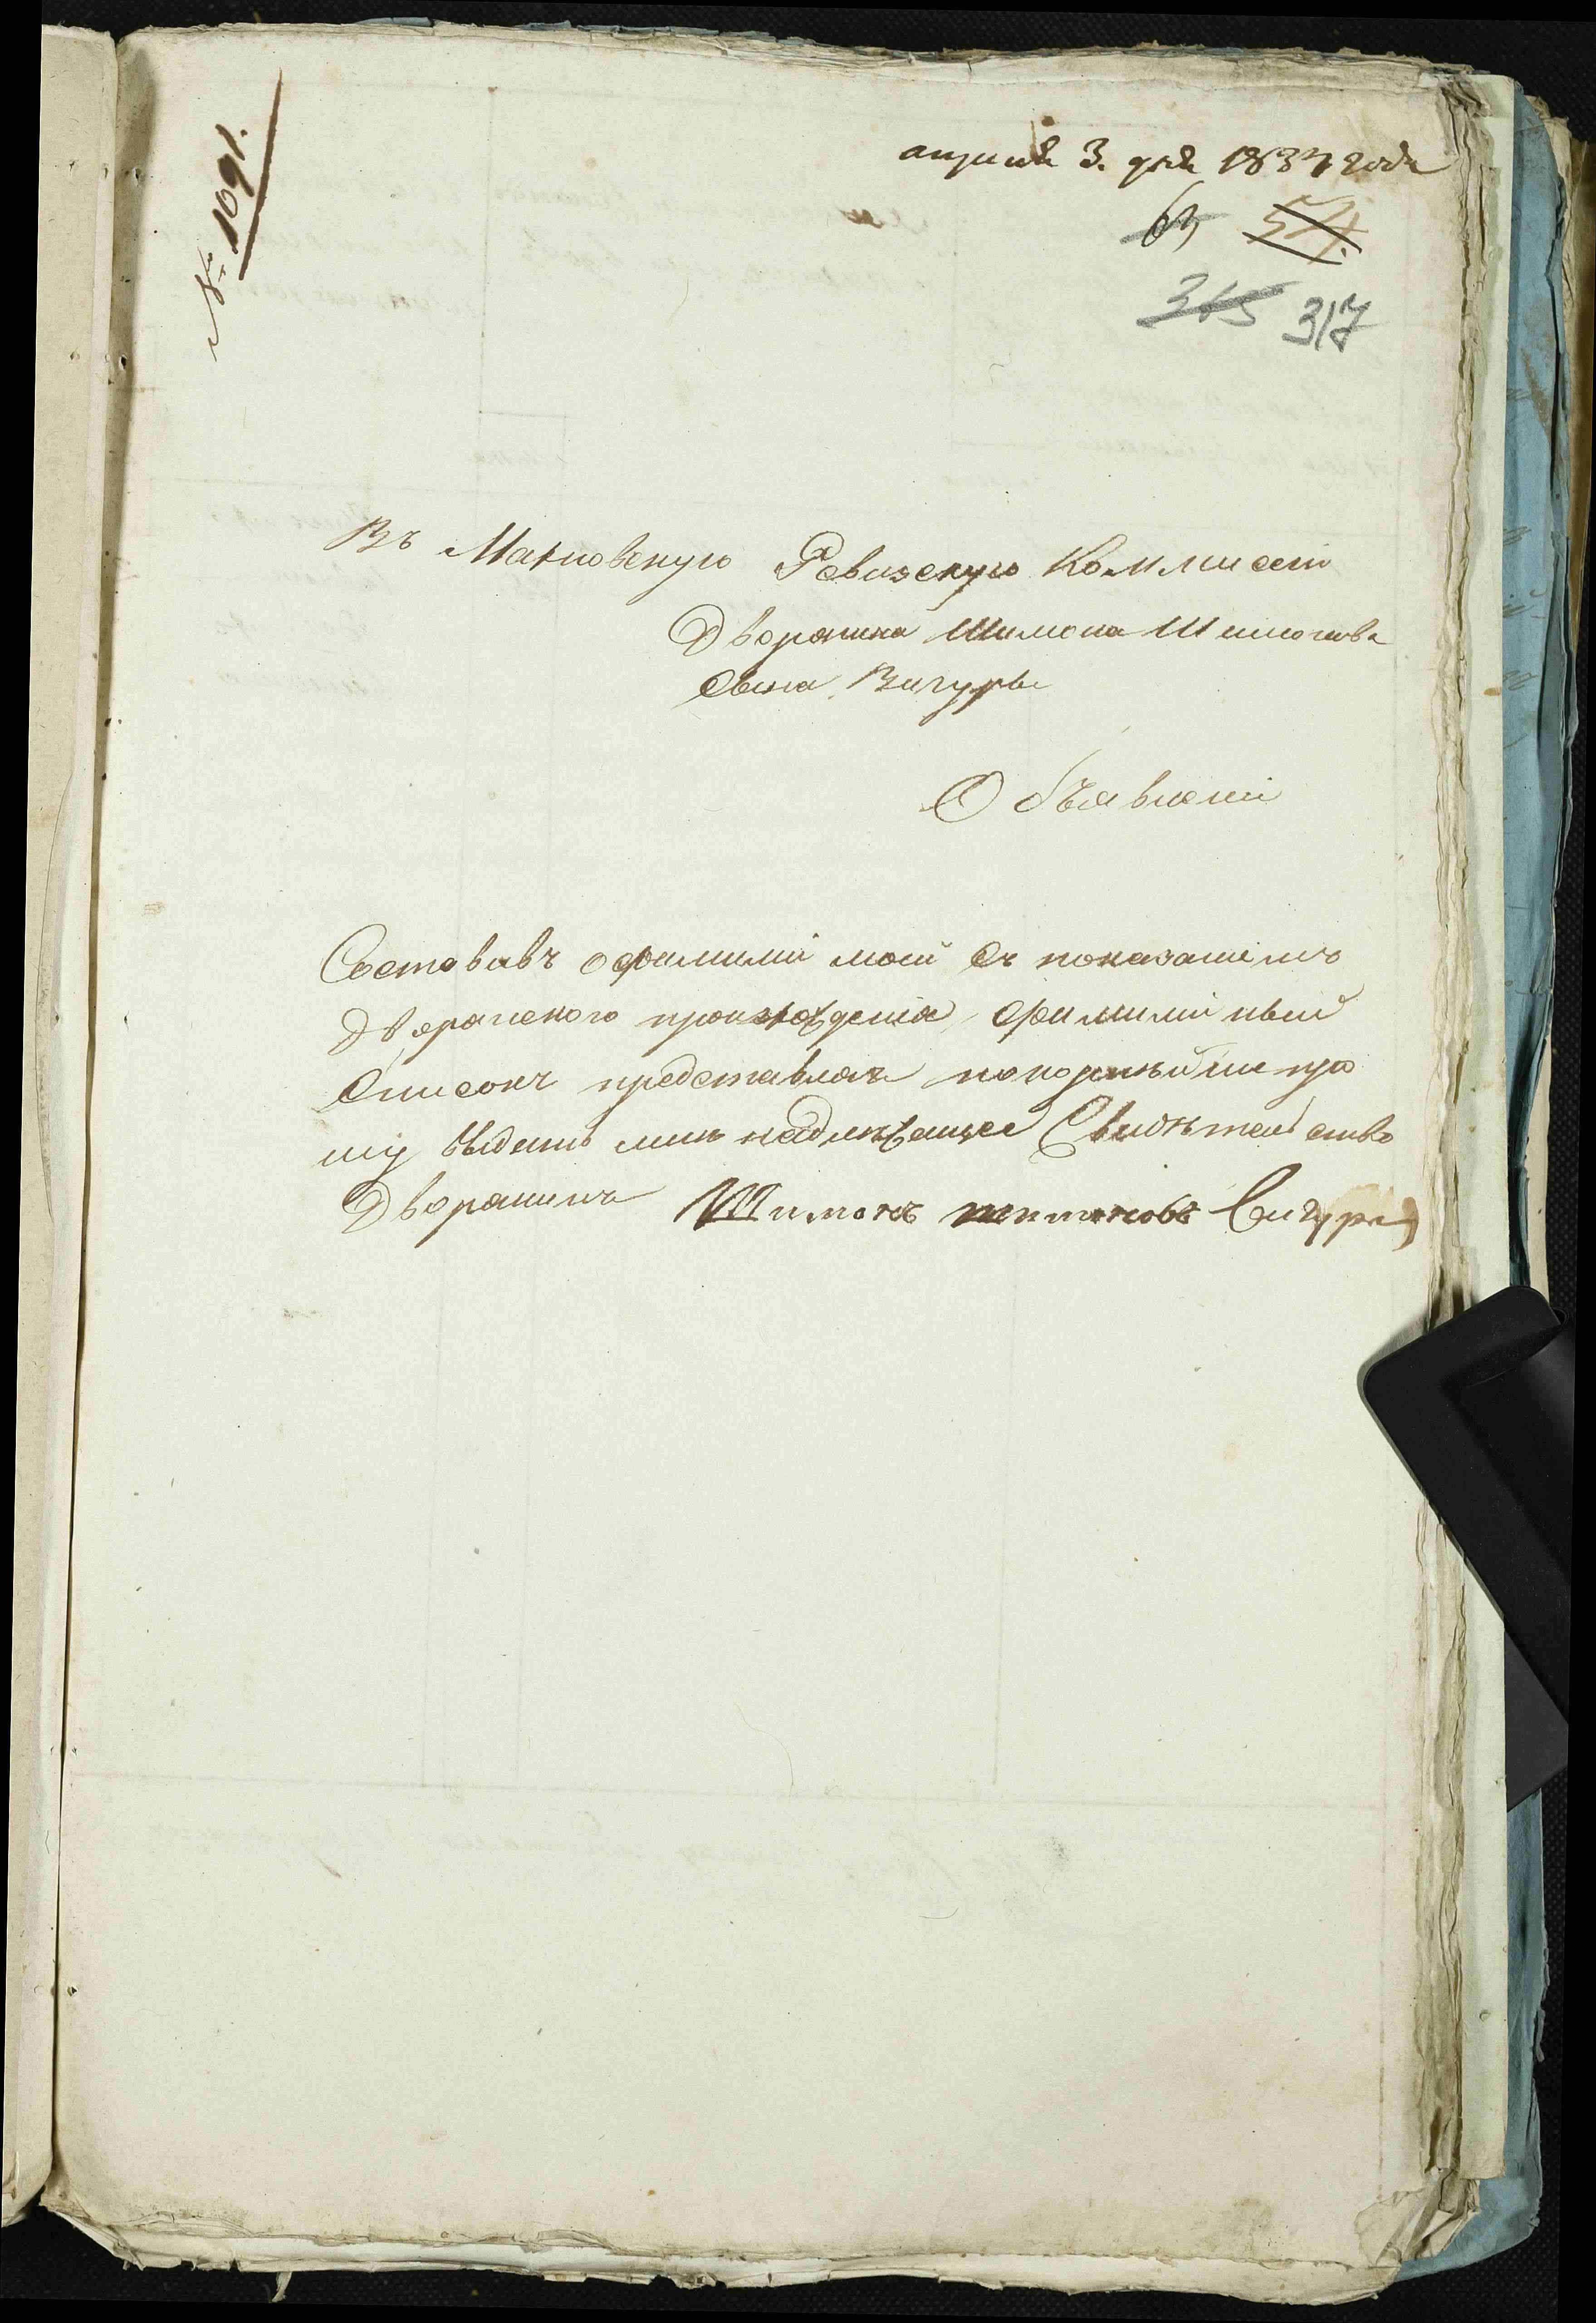 № 1091.
апреля 3. дня 1834 года
63 54.
315 317
Въ Махновскую Ревизскую Коммисею
Дворянина Шимона Шимонова
Сына Вигуры
Объявлени
Составивъ о фамилии моей Съ показаниемъ
Дворянского произхождения, фамилийный
Список представляя покорнейше про
шу выдать мне надлежащее Свидетельство
Дворянинъ Шимонъ шимоновъ Вигура